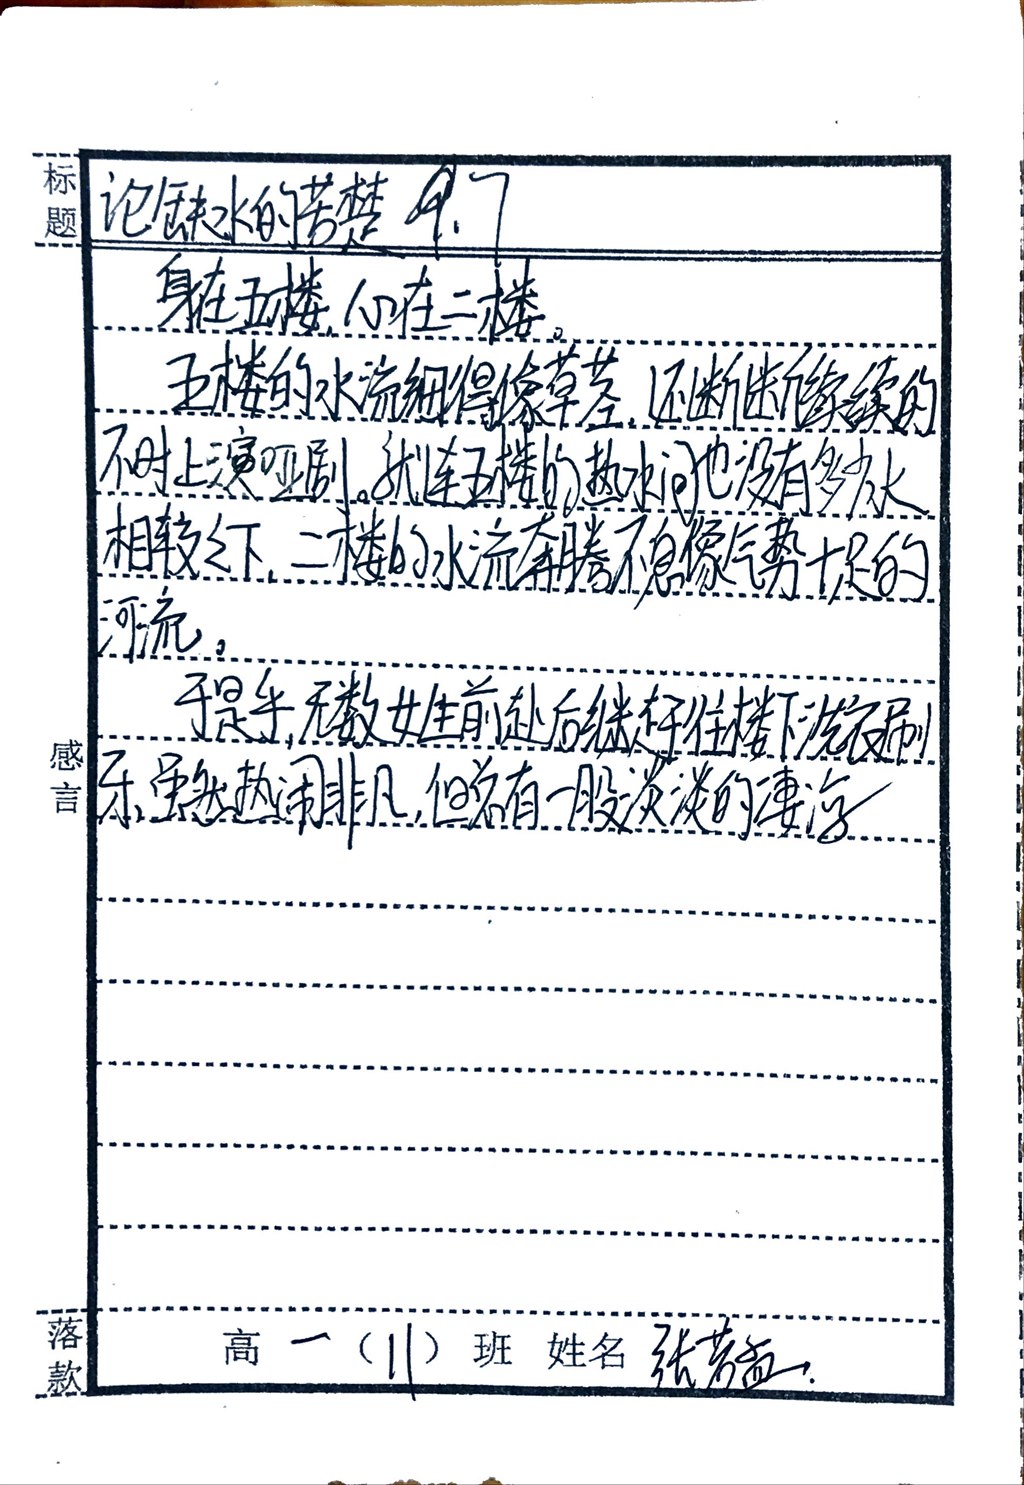 标题
论缺水的苦楚 9.7
身在五楼,心在二楼。
五楼的水流细得像草茎,还断断续续的
不时上演哑剧。就连五楼的热水间也没有多少水
相较之下,二楼的水流奔腾不息像气势十足的
河流。
于是乎,无数女生前赴后继奔往楼下洗衣刷
牙,虽然热闹非凡,但总有一股淡淡的凄凉
感言
落款
高一(11)班 姓名 张芳